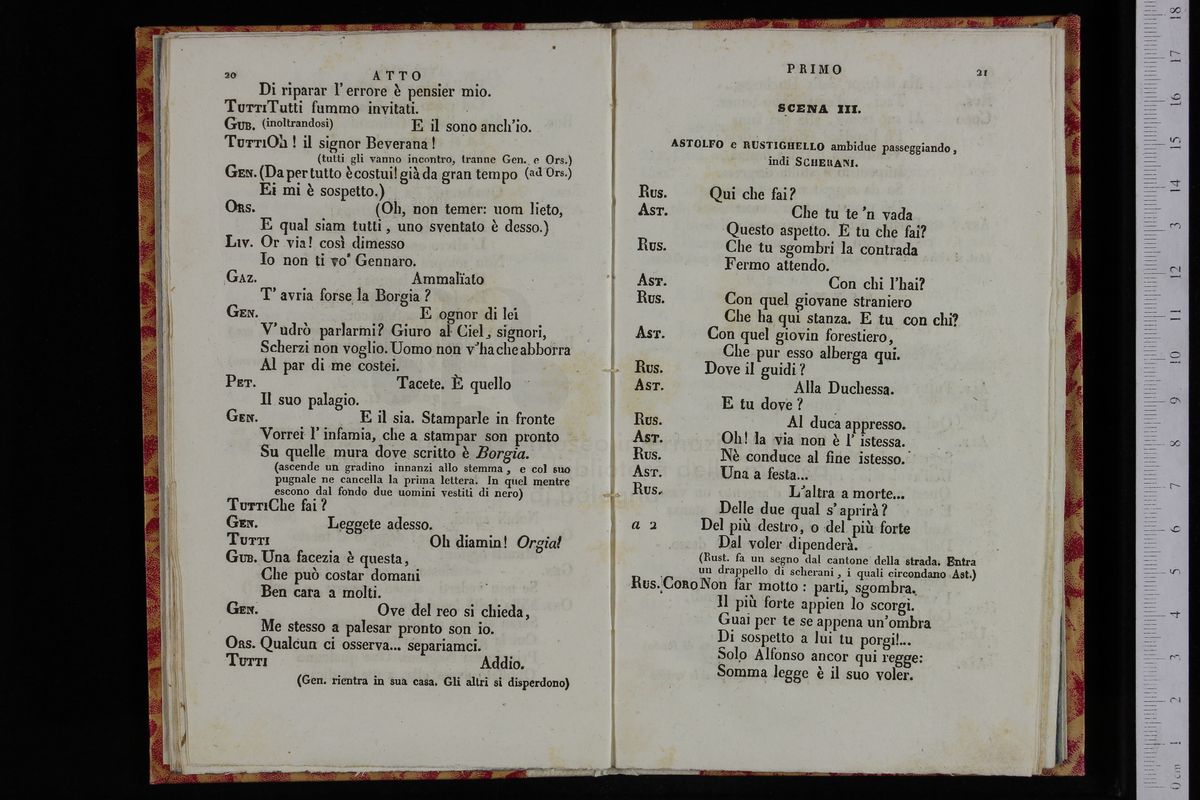 20 ATTO
Di riparar l'errore è pensier mio.
TUTTI Tutti fummo invitati.
GUB. (inoltrandosi) E il sono anch'io.
TUTTI Oh! il signor Beverana!
(tutti gli vanno incontro, tranne Gen. e Ors.)
GEN. (Da per tutto è costui! già da gran tempo (ad Ors.)
Ei mi è sospetto.)
ORS. (Oh, non temer: uom lieto,
E qual siam tutti, uno sventato è desso.)
LIV. Or via! così dimesso
Io non ti vo' Gennaro.
GAZ. Ammalïato
T'avria forse la Borgia?
GEN. E ognor di lei
V'udrò parlarmi? Giuro al Ciel, signori,
Scherzi non voglio. Uomo non v'ha che abborra
Al par di me costei.
PET. Tacete. È quello
Il suo palagio.
GEN. E il sia. Stamparle in fronte
Vorrei l'infamia, che a stampar son pronto
Su quelle mura dove scritto è Borgia.
(ascende un gradino innanzi allo stemma, e col suo
pugnale ne cancella la prima lettera. In quel mentre
escono dal fondo due uomini vestiti di nero)
TUTTI Che fai?
GEN. Leggete adesso.
TUTTI Oh diamin! Orgia!
GUB. Una facezia è questa,
Che può costar domani
Ben cara a molti.
GEN. Ove del reo si chieda,
Me stesso a palesar pronto son io.
ORS. Qualcun ci osserva... separiamci.
TUTTI Addio.
(Gen. rientra in sua casa. Gli altri si disperdono)
PRIMO 21
SCENA III.
ASTOLFO e RUSTIGHELLO ambidue passeggiando,
indi SCHERANI.
RUS. Qui che fai?
AST. Che tu te 'n vada
Questo aspetto. E tu che fai?
RUS. Che tu sgombri la contrada
Fermo attendo.
AST. Con chi l'hai?
RUS. Con quel giovane straniero
Che ha qui stanza. E tu con chi?
AST. Con quel giovin forestiero,
Che pur esso alberga qui.
RUS. Dove il guidi?
AST. Alla Duchessa.
E tu dove?
RUS. Al duca appresso.
AST. Oh! la via non è l'istessa.
RUS. Nè conduce al fine istesso.
AST. Una a festa...
RUS. L'altra a morte...
Delle due qual s'aprirà?
a 2 Del più destro, o del più forte
Dal voler dipenderà.
(Rust. fa un segno dal cantone della strada. Entra
un drappello di scherani, i quali circondano Ast.)
RUS. CORO Non far motto: parti, sgombra.
Il più forte appien lo scorgi.
Guai per te se appena un'ombra
Di sospetto a lui tu porgi!...
Solo Alfonso ancor qui regge:
Somma legge è il suo voler.